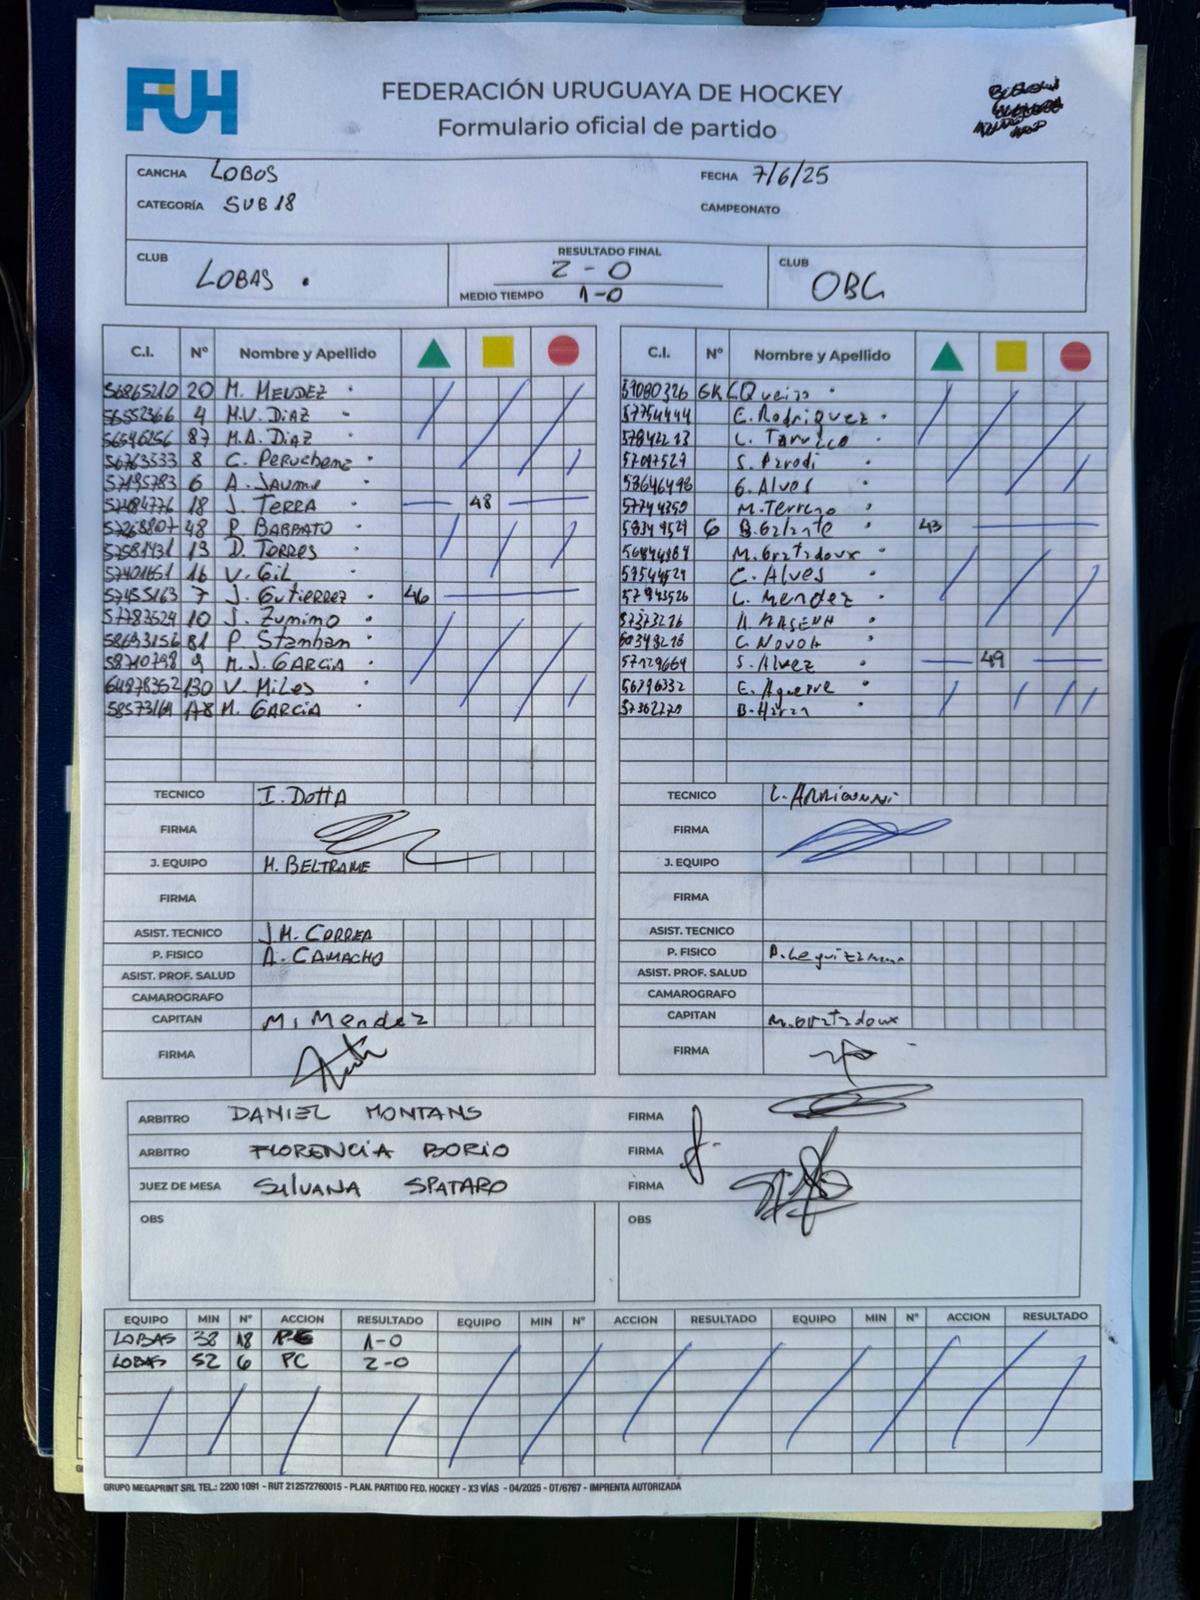 FUH
FEDERACIÓN URUGUAYA DE HOCKEY
Formulario oficial de partido
CANCHA LOBOS FECHA 7/6/25
CATEGORÍA SUB 18 CAMPEONATO
CLUB LOBAS . RESULTADO FINAL 2 - 0 CLUB OBG
MEDIO TIEMPO 1-0
C.I. Nº Nombre y Apellido
56865210 20 M. MENDEZ
56552366 4 M.V. DiAZ
56546256 87 M.A. DiAZ
56763533 8 C. Peruchena
57195783 6 A. JAUME
57484776 18 J. TERRA 48
57268807 48 P. BARBATO
57581431 13 D. TORRES
57401651 16 V. GiL
57455163 7 J. Gutierrez 46
57783524 10 J. Zunino
58693156 81 P. Stanham
58710798 9 M. J. GARCiA
64878352 130 V. MiLes
58573169 18 M. GARCiA
TECNICO I. Dotta
FIRMA
J. EQUIPO M. BELTRAME
FIRMA
ASIST. TECNICO J.M. CORREA
P. FISICO A. CAMACHO
ASIST. PROF. SALUD
CAMAROGRAFO
CAPITAN M, Mendez
FIRMA
C.I. Nº Nombre y Apellido
57080326 GK C Queiro
57754444 E. Rodriguez
C. Tarocco
57097529 S. Parodi
58646498 G. Alves
57744350 M. Terreno
58349529 6 B. Galante 43
56844984 M. Gratadoux
57544529 C. Alves
57943526 L. Mendez
57373216
60348218 C. Novoa
57129664 S. Alvez 49
56796332 E. Aguerre
57362770
TECNICO
FIRMA
J. EQUIPO
FIRMA
ASIST. TECNICO
P. FISICO
ASIST. PROF. SALUD
CAMAROGRAFO
CAPITAN M. Gratadoux
FIRMA
ARBITRO DANIEL MONTANS FIRMA
ARBITRO FLORENCIA BORIO FIRMA
JUEZ DE MESA SILVANA SPATARO FIRMA
OBS OBS
EQUIPO MIN Nº ACCION RESULTADO EQUIPO MIN Nº ACCION RESULTADO EQUIPO MIN Nº ACCION RESULTADO
LOBAS 38 18 1-0
LOBAS 52 6 PC 2-0
GRUPO MEGAPRINT SRL TEL.: 2200 1091 - RUT 212572760015 - PLAN. PARTIDO FED. HOCKEY - X3 VÍAS - 04/2025 - OT/6767 - IMPRENTA AUTORIZADA